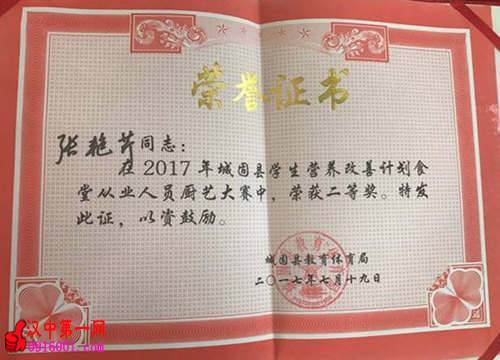 荣誉证书
张艳芹同志：
在2017年城固县学生营养改善计划食
堂从业人员厨艺大赛中，荣获二等奖。特发
此证，以资鼓励。
城固县教育体育局
二〇一七年七月十九日
汉中第一网
0916001.com